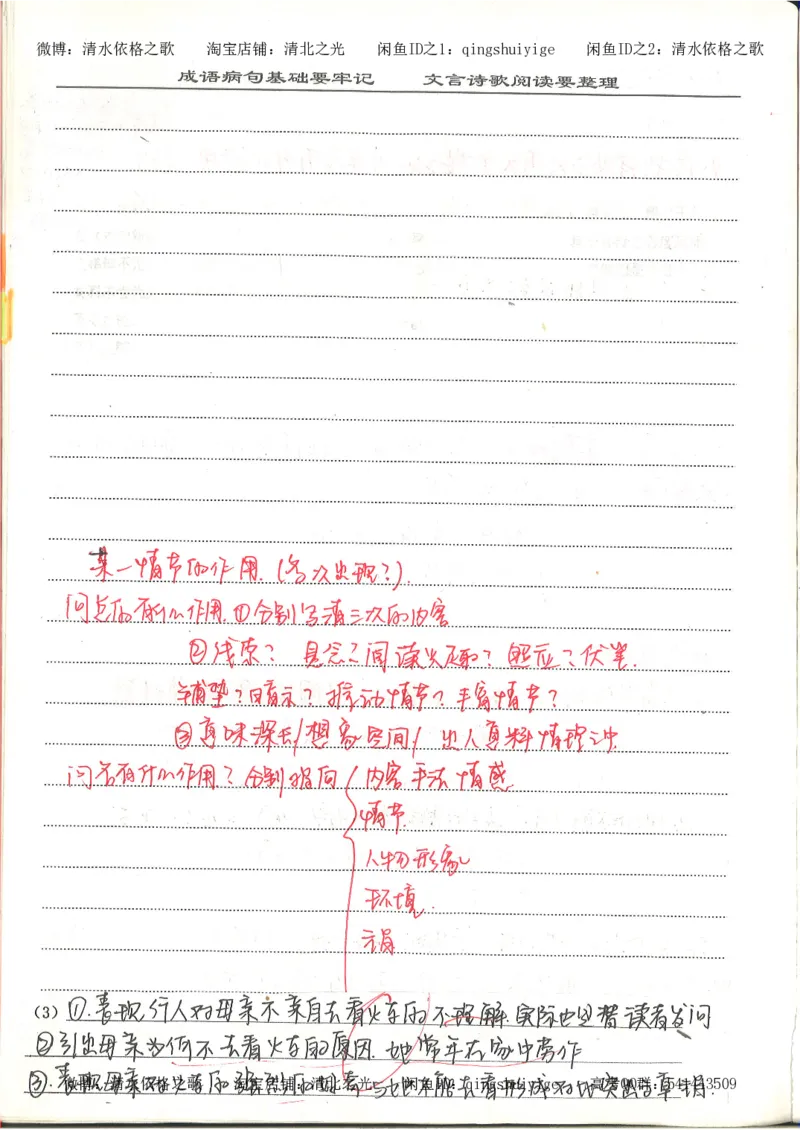 微博：清水依格之歌 淘宝店铺：清北之光 闲鱼ID之1：qingshuiyige 闲鱼ID之2：清水依格之歌
成语病句基础要牢记 文言诗歌阅读要整理
某一情节的作用.(多次出现?).
问总的有什么作用.①分别写清三次的内容
②线索? 悬念?阅读兴趣? 照应?伏笔.
铺垫?暗示? 推动情节?丰富情节?
③意味深长/想象空间/ 出人意料情理之中.
问各有什么作用?分别指向 内容 手法 情感
情节
人物形象
环境.
主旨
(3) ①.表现行人对母亲不亲自去看火车的不理解.实际也是替读者发问
②引出母亲为何不去看火车的原因.她常年在家中劳作
③.表现母亲